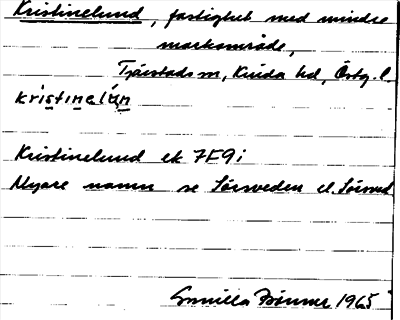 Kristinelund, fastighet med mindre
markområde,
Tjärstads sn, Kinda hd, Östg. l.
kristinelún
Kristinelund ek 7F9i
Nyare namn se Sörsveden el. Sörsved
Gunilla 1965